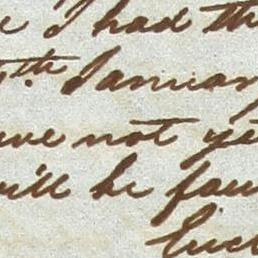 I had th
th January
not ye
will be fou